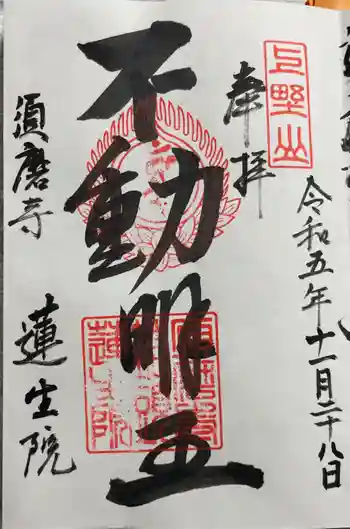 奉拝
上野山
令和五年十一月二十八日
不動明王
須磨寺
蓮生院